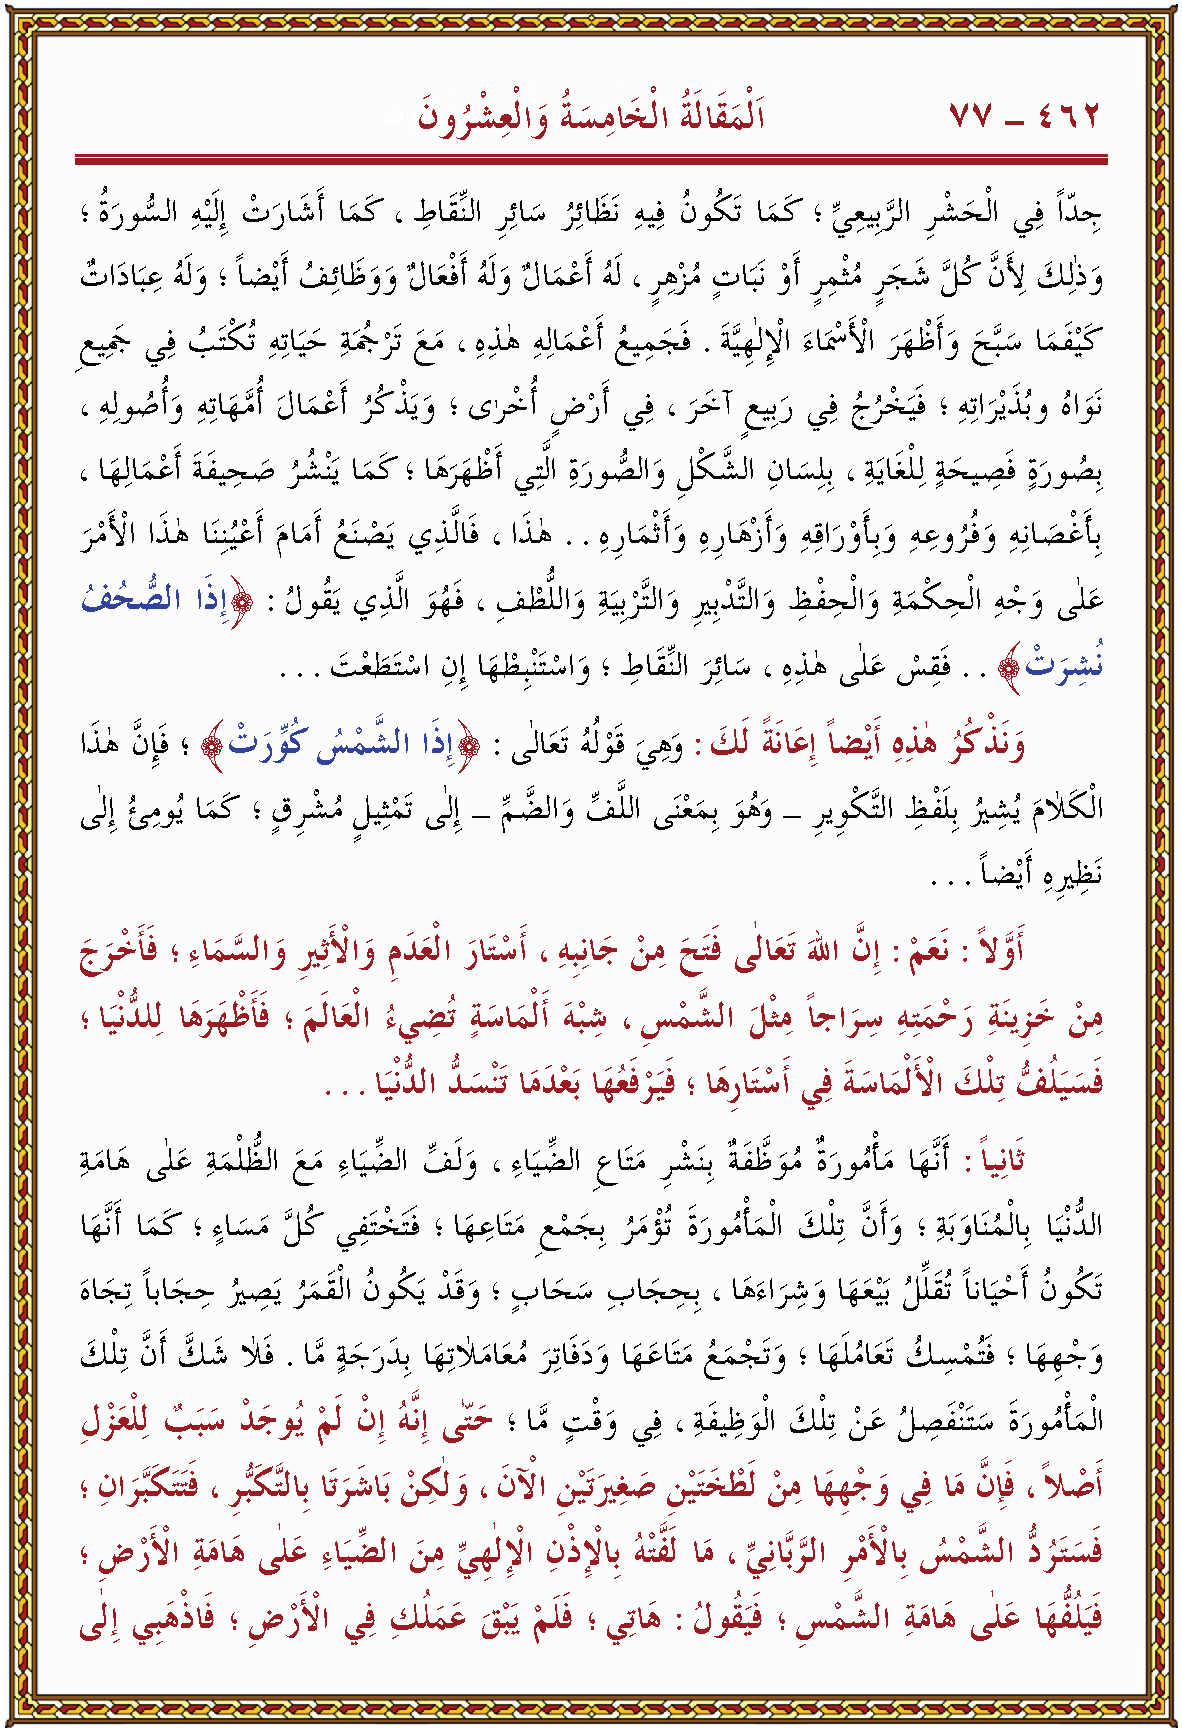 ٤٦٢ – ٧٧
اَلْمَقَالَةُ الْخَامِسَةُ وَالْعِشْرُونَ
جِدّاً فِي الْحَشْرِ الرَّبِيعِيِّ ؛ كَمَا تَكُونُ فِيهِ نَظَائِرُ سَائِرِ النِّقَاطِ ، كَمَا أَشَارَتْ إِلَيْهِ السُّورَةُ ؛
وَذٰلِكَ لِأَنَّ كُلَّ شَجَرٍ مُثْمِرٍ أَوْ نَبَاتٍ مُزْهِرٍ ، لَهُ أَعْمَالٌ وَلَهُ أَفْعَالٌ وَوَظَائِفُ أَيْضاً ؛ وَلَهُ عِبَادَاتٌ
كَيْفَمَا سَبَّحَ وَأَظْهَرَ الْأَسْمَاءَ الْإِلٰهِيَّةَ . فَجَمِيعُ أَعْمَالِهِ هٰذِهِ ، مَعَ تَرْجُمَةِ حَيَاتِهِ تُكْتَبُ فِي جَمِيعِ
نَوَاهُ وبُذَيْرَاتِهِ ؛ فَيَخْرُجُ فِي رَبِيعٍ آخَرَ ، فِي أَرْضٍ أُخْرٰى ؛ وَيَذْكُرُ أَعْمَالَ أُمَّهَاتِهِ وَأُصُولِهِ ،
بِصُورَةٍ فَصِيحَةٍ لِلْغَايَةِ ، بِلِسَانِ الشَّكْلِ وَالصُّورَةِ الَّتِي أَظْهَرَهَا ؛ كَمَا يَنْشُرُ صَحِيفَةَ أَعْمَالِهَا ،
بِأَغْصَانِهِ وَفُرُوعِهِ وَبِأَوْرَاقِهِ وَأَزْهَارِهِ وَأَثْمَارِهِ . . هٰذَا ، فَالَّذِي يَصْنَعُ أَمَامَ أَعْيُنِنَا هٰذَا الْأَمْرَ
عَلٰى وَجْهِ الْحِكْمَةِ وَالْحِفْظِ وَالتَّدْبِيرِ وَالتَّرْبِيَةِ وَاللُّطْفِ ، فَهُوَ الَّذِي يَقُولُ : ﴿إِذَا الصُّحُفُ
نُشِرَتْ﴾ . . فَقِسْ عَلٰى هٰذِهِ ، سَائِرَ النِّقَاطِ ؛ وَاسْتَنْبِطْهَا إِنِ اسْتَطَعْتَ . . .
وَنَذْكُرُ هٰذِهِ أَيْضاً إِعَانَةً لَكَ : وَهِيَ قَوْلُهُ تَعَالٰى : ﴿إِذَا الشَّمْسُ كُوِّرَتْ﴾ ؛ فَإِنَّ هٰذَا
الْكَلَامَ يُشِيرُ بِلَفْظِ التَّكْوِيرِ – وَهُوَ بِمَعْنَى اللَّفِّ وَالضَّمِّ – إِلٰى تَمْثِيلٍ مُشْرِقٍ ؛ كَمَا يُومِئُ إِلٰى
نَظِيرِهِ أَيْضاً . . .
أَوَّلاً : نَعَمْ : إِنَّ اللهَ تَعَالٰى فَتَحَ مِنْ جَانِبِهِ ، أَسْتَارَ الْعَدَمِ وَالْأَثِيرِ وَالسَّمَاءِ ؛ فَأَخْرَجَ
مِنْ خَزِينَةِ رَحْمَتِهِ سِرَاجاً مِثْلَ الشَّمْسِ ، شِبْهَ أَلْمَاسَةٍ تُضِيءُ الْعَالَمَ ؛ فَأَظْهَرَهَا لِلدُّنْيَا ؛
فَسَيَلُفُّ تِلْكَ الْأَلْمَاسَةَ فِي أَسْتَارِهَا ؛ فَيَرْفَعُهَا بَعْدَمَا تَنْسَدُّ الدُّنْيَا . . .
ثَانِياً : أَنَّهَا مَأْمُورَةٌ مُوَظَّفَةٌ بِنَشْرِ مَتَاعِ الضِّيَاءِ ، وَلَفِّ الضِّيَاءِ مَعَ الظُّلْمَةِ عَلٰى هَامَةِ
الدُّنْيَا بِالْمُنَاوَبَةِ ؛ وَأَنَّ تِلْكَ الْمَأْمُورَةَ تُؤْمَرُ بِجَمْعِ مَتَاعِهَا ؛ فَتَخْتَفِي كُلَّ مَسَاءٍ ؛ كَمَا أَنَّهَا
تَكُونُ أَحْيَاناً تُقَلِّلُ بَيْعَهَا وَشِرَاءَهَا ، بِحِجَابِ سَحَابٍ ؛ وَقَدْ يَكُونُ الْقَمَرُ يَصِيرُ حِجَاباً تِجَاهَ
وَجْهِهَا ؛ فَتُمْسِكُ تَعَامُلَهَا ؛ وَتَجْمَعُ مَتَاعَهَا وَدَفَاتِرَ مُعَامَلَاتِهَا بِدَرَجَةٍ مَّا . فَلَا شَكَّ أَنَّ تِلْكَ
الْمَأْمُورَةَ سَتَنْفَصِلُ عَنْ تِلْكَ الْوَظِيفَةِ ، فِي وَقْتٍ مَّا ؛ حَتّٰى إِنَّهُ إِنْ لَمْ يُوجَدْ سَبَبٌ لِلْعَزْلِ
أَصْلاً ، فَإِنَّ مَا فِي وَجْهِهَا مِنْ لَطْخَتَيْنِ صَغِيرَتَيْنِ الْآنَ ، وَلٰكِنْ بَاشَرَتَا بِالتَّكَبُّرِ ، فَتَتَكَبَّرَانِ ؛
فَسَتَرُدُّ الشَّمْسُ بِالْأَمْرِ الرَّبَّانِيِّ ، مَا لَفَّتْهُ بِالْإِذْنِ الْإِلٰهِيِّ مِنَ الضِّيَاءِ عَلٰى هَامَةِ الْأَرْضِ ؛
فَيَلُفُّهَا عَلٰى هَامَةِ الشَّمْسِ ؛ فَيَقُولُ : هَاتِي ؛ فَلَمْ يَبْقَ عَمَلُكِ فِي الْأَرْضِ ؛ فَاذْهَبِي إِلٰى